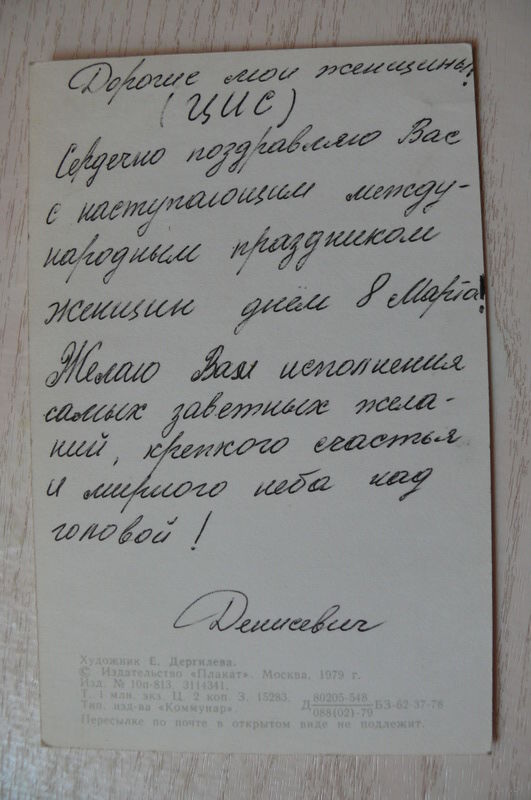 Дорогие мои женщины!
(ЦИС)
Сердечно поздравляю Вас
с наступающим между-
народным праздником
женщин днём 8 Марта!
Желаю Вам исполнения
самых заветных жела-
ний, крепкого счастья
и мирного неба над
головой!
Денисевич
Художник Е. Дергилева.
© Издательство «Плакат». Москва, 1979 г.
Изд. № 10п-813. 3114341.
Т. 1 млн. экз. Ц. 2 коп. З. 15283. Д 80205-548 БЗ-62-37-78
Тип. изд-ва «Коммунар». 088(02)-79
Пересылке по почте в открытом виде не подлежит.